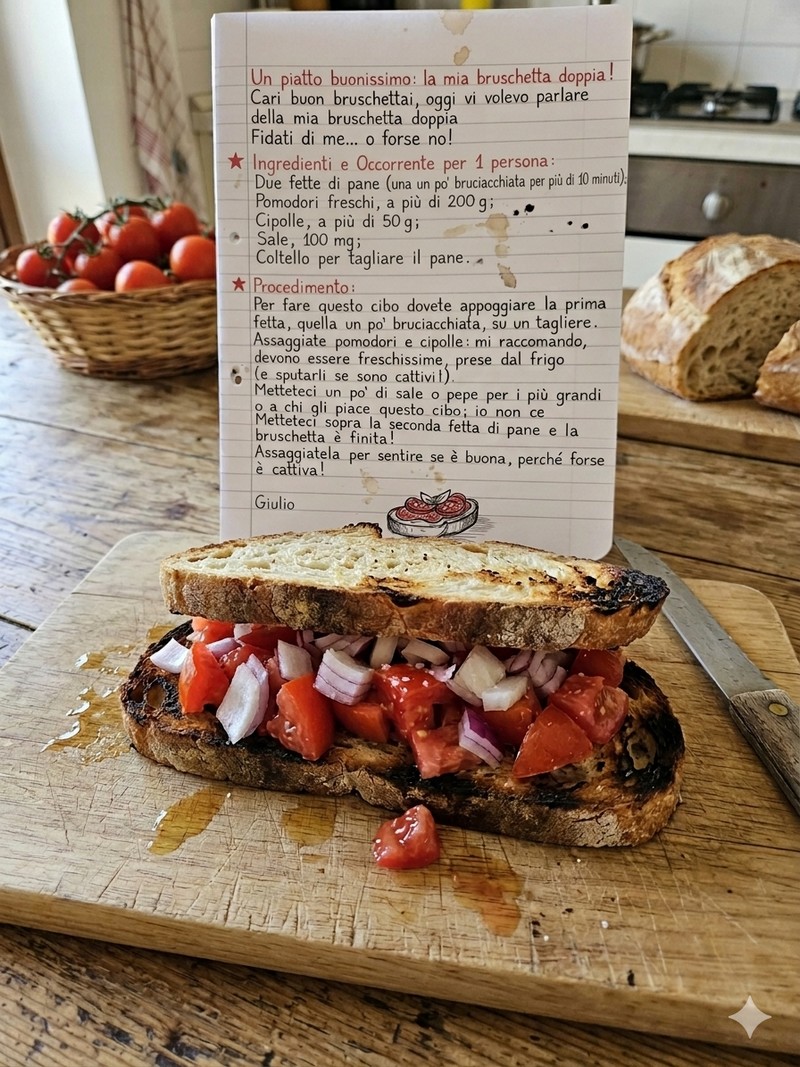 Un piatto buonissimo: la mia bruschetta doppia!
Cari buon bruschettai, oggi vi volevo parlare
della mia bruschetta doppia
Fidati di me... o forse no!
Ingredienti e Occorrente per 1 persona:
Due fette di pane (una un po' bruciacchiata per più di 10 minuti);
Pomodori freschi, a più di 200 g;
Cipolle, a più di 50 g;
Sale, 100 mg;
Coltello per tagliare il pane.
Procedimento:
Per fare questo cibo dovete appoggiare la prima
fetta, quella un po' bruciacchiata, su un tagliere.
Assaggiate pomodori e cipolle: mi raccomando,
devono essere freschissime, prese dal frigo
(e sputarli se sono cattivi!).
Metteteci un po' di sale o pepe per i più grandi
o a chi gli piace questo cibo; io non ce
Metteteci sopra la seconda fetta di pane e la
bruschetta è finita!
Assaggiatela per sentire se è buona, perché forse
è cattiva!
Giulio